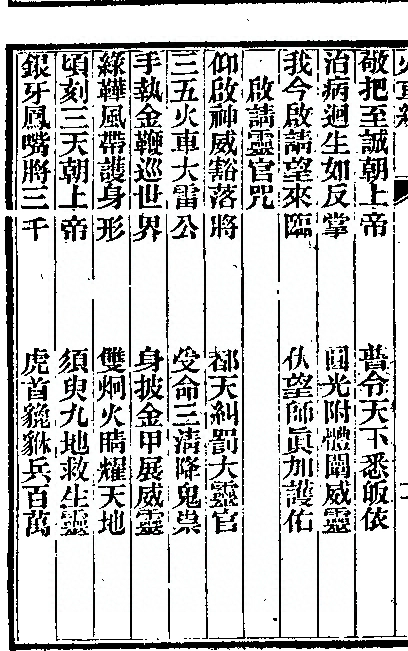 敬把至誠朝上帝　普令天下悉皈依
治病迴生如反掌　圓光附體闡威靈
我今啟請望來臨　伏望師眞加護佑
啟請靈官咒
仰啟神威豁落將　都天糾罰大靈官
三五火車大雷公　受命三清降鬼祟
手執金鞭巡世界　身披金甲展威靈
綠鞾風帶護身形　雙炯火睛耀天地
頃刻三天朝上帝　須臾九地救生靈
銀牙鳳嘴將三千　虎首貔貅兵百萬